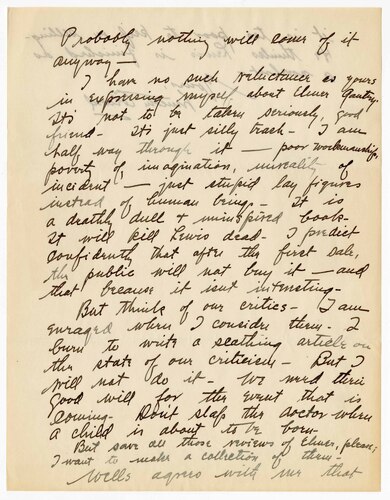 Probably nothing will come of it
anyway—
I have no such reluctance as yours
in expressing myself about Elmer Gantry.
It's not to be taken seriously, good
friend— It's just silly trash— I am
half way through it — poor workmanship,
poverty of imagination, unreality of
incident — just stupid lay figures
instead of human beings— It is
a deathly dull & uninspired book—
It will kill Lewis dead— I predict
confidently that after the first sale,
the public will not buy it — and
that because it isn't interesting—
But think of our critics— I am
enraged when I consider them— I
burn to write a scathing article on
the state of our criticism— But I
will not do it— We need their
good will for the event that is
coming— Don't slap the doctor when
a child is about to be born—
But save all those reviews of Elmer, please;
I want to make a collection of them—
Wells agrees with me that